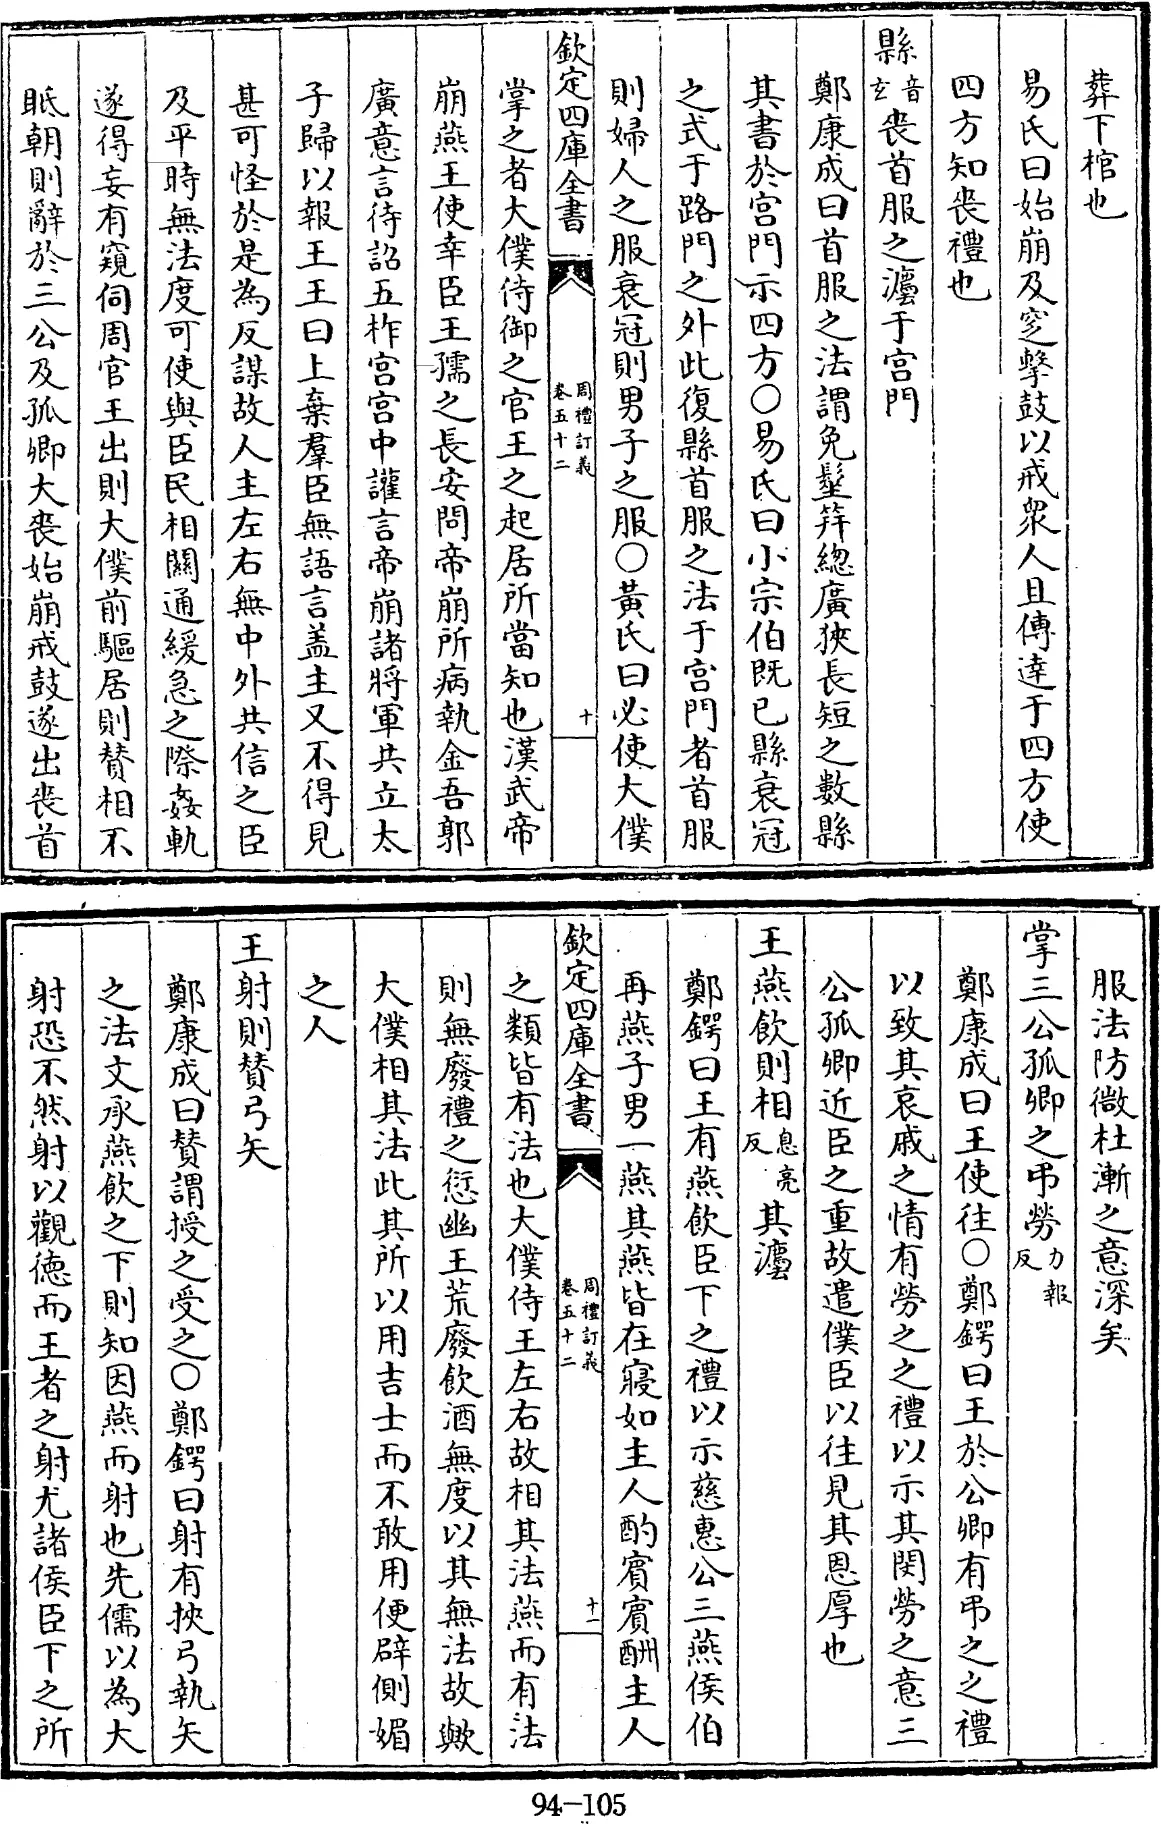 葬下棺也
易氏曰始崩及窆擊鼓以戒衆人且傳達于四方使
四方知喪禮也
縣音玄喪首服之灋于宫門
鄭康成曰首服之法謂免髽笄總廣狹長短之數縣
其書於宫門示四方○易氏曰小宗伯既已縣衰冠
之式于路門之外此復縣首服之法于宫門者首服
則婦人之服衰冠則男子之服○黄氏曰必使大僕
欽定四庫全書
周禮訂義
卷五十二
十
掌之者大僕侍御之官王之起居所當知也漢武帝
崩燕王使幸臣王孺之長安問帝崩所病執金吾郭
廣意言待詔五柞宫宫中讙言帝崩諸將軍共立太
子歸以報王王曰上棄羣臣無語言盖主又不得見
甚可怪於是為反謀故人主左右無中外共信之臣
及平時無法度可使與臣民相關通緩急之際姦軌
遂得妄有窺伺周官王出則大僕前驅居則贊相不
眡朝則辭於三公及孤卿大喪始崩戒鼓遂出喪首
服法防微杜漸之意深矣
掌三公孤卿之弔勞力報反
鄭康成曰王使往○鄭鍔曰王於公卿有弔之之禮
以致其哀戚之情有勞之之禮以示其閔勞之意三
公孤卿近臣之重故遣僕臣以往見其恩厚也
王燕飲則相息亮反其灋
鄭鍔曰王有燕飲臣下之禮以示慈惠公三燕侯伯
再燕子男一燕其燕皆在寢如主人酌賓賓酬主人
欽定四庫全書
周禮訂義
卷五十二
十一
之類皆有法也大僕侍王左右故相其法燕而有法
則無廢禮之愆幽王荒廢飲酒無度以其無法故歟
大僕相其法此其所以用吉士而不敢用便辟側媚
之人
王射則贊弓矢
鄭康成曰贊謂授之受之○鄭鍔曰射有挾弓執矢
之法文承燕飲之下則知因燕而射也先儒以為大
射恐不然射以觀德而王者之射尤諸侯臣下之所
94-105